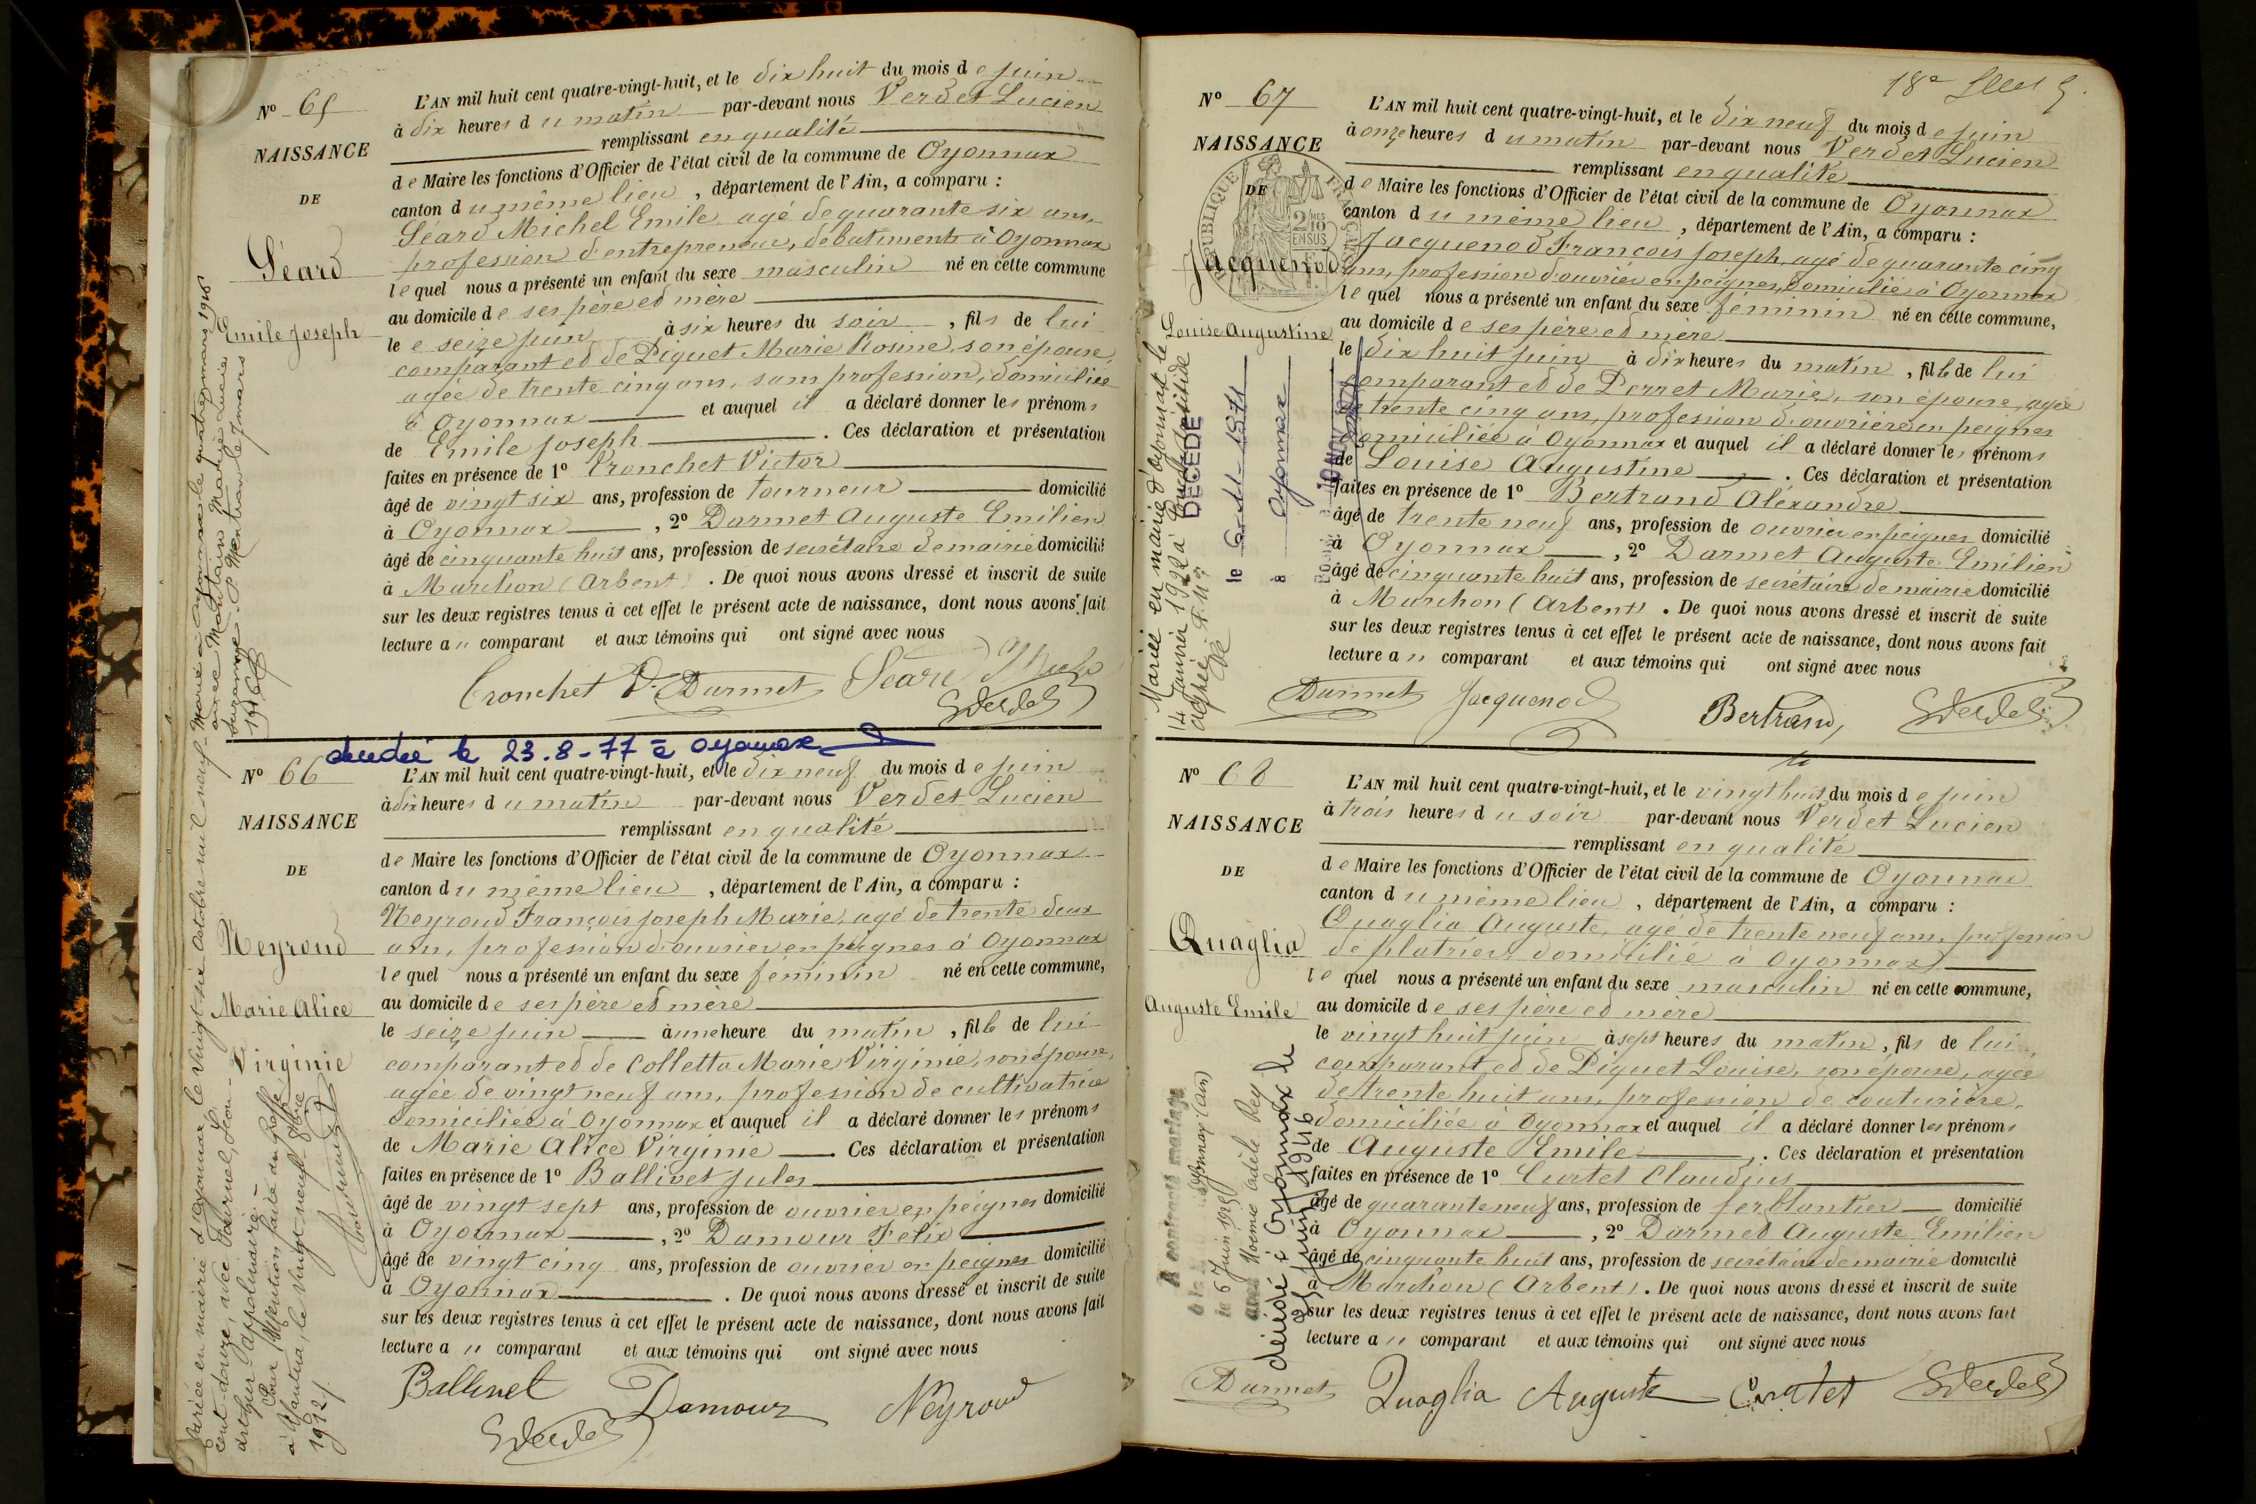 N° 65
NAISSANCE
DE
Séard
Emile Joseph
L'AN mil huit cent quatre-vingt-huit, et le dix huit du mois de juin
à dix heures du matin par-devant nous Verdet Lucien
remplissant en qualité
de Maire les fonctions d'Officier de l'état civil de la commune de Oyonnax
canton du même lieu, département de l'Ain, a comparu :
Séard Michel Emile agé de quarante six ans,
profession d'entrepreneur, de batiments à Oyonnax
lequel nous a présenté un enfant du sexe masculin né en cette commune
au domicile de ses père et mère
le e seize juin à six heures du soir, fils de lui
comparant et de Piquet Marie Rosine, son épouse,
agée de trente cinq ans, sans profession, domiciliée
à Oyonnax et auquel il a déclaré donner les prénoms
de Emile Joseph. Ces déclaration et présentation
faites en présence de 1° Cronchet Victor
âgé de vingt six ans, profession de tourneur domicilié
à Oyonnax, 2° Darmet Auguste Emilien
âgé de cinquante huit ans, profession de secrétaire de mairie domicilié
à Marchon (Arbent). De quoi nous avons dressé et inscrit de suite
sur les deux registres tenus à cet effet le présent acte de naissance, dont nous avons fait
lecture a u comparant et aux témoins qui ont signé avec nous
Cronchet V. Darmet Séard
Marié à Oyonnax le quatre mars 1916
avec Mandain Marie Lucie
Suzanne.
décédé le 23.8-77 à Oyonnax
N° 66
NAISSANCE
DE
Neyroud
Marie Alice
Virginie
L'AN mil huit cent quatre-vingt-huit, et le dix neuf du mois de juin
à dix heures du matin par-devant nous Verdet Lucien
remplissant en qualité
de Maire les fonctions d'Officier de l'état civil de la commune de Oyonnax
canton du même lieu, département de l'Ain, a comparu :
Neyroud François Joseph Marie, agé de trente deux
ans, profession d'ouvrier en peignes à Oyonnax
lequel nous a présenté un enfant du sexe féminin né en cette commune,
au domicile de ses père et mère
le seize juin à une heure du matin, fille de lui
comparant et de Colletta Marie Virginie, son épouse,
agée de vingt neuf ans, profession de cultivatrice
domiciliée à Oyonnax et auquel il a déclaré donner les prénoms
de Marie Alice Virginie. Ces déclaration et présentation
faites en présence de 1° Ballivet Jules
âgé de vingt sept ans, profession de ouvrier en peignes domicilié
à Oyonnax, 2° Damour Félix
âgé de vingt cinq ans, profession de ouvrier en peignes domicilié
à Oyonnax. De quoi nous avons dressé et inscrit de suite
sur les deux registres tenus à cet effet le présent acte de naissance, dont nous avons fait
lecture a u comparant et aux témoins qui ont signé avec nous
Ballivet Damour Neyroud
Mariée en mairie d'Oyonnax le vingt six Octobre mil neuf
cent douze, avec Tournel, Léon-
Arthur-Appolinaire.-
Pour Mention faite au greffe
à Nantua, le vingt-neuf 8bre
1912/.
18e
N° 67
NAISSANCE
DE
RÉPUBLIQUE FRANÇAISE
Jacquenod
Louise Augustine
L'AN mil huit cent quatre-vingt-huit, et le dix neuf du mois de juin
à onze heures du matin par-devant nous Verdet Lucien
remplissant en qualité
de Maire les fonctions d'Officier de l'état civil de la commune de Oyonnax
canton du même lieu, département de l'Ain, a comparu :
Jacquenod François Joseph, agé de quarante cinq
ans, profession d'ouvrier en peignes, domicilié à Oyonnax
lequel nous a présenté un enfant du sexe féminin né en cette commune,
au domicile de ses père et mère
le dix huit juin à dix heures du matin, fille de lui
comparant et de Perret Marie, son épouse, agée
de trente cinq ans, profession d'ouvrière en peignes
domiciliée à Oyonnax et auquel il a déclaré donner les prénoms
de Louise Augustine. Ces déclaration et présentation
faites en présence de 1° Bertrand Alexandre
âgé de trente neuf ans, profession de ouvrier en peignes domicilié
à Oyonnax, 2° Darmet Auguste Emilien
âgé de cinquante huit ans, profession de secrétaire de mairie domicilié
à Marchon (Arbent). De quoi nous avons dressé et inscrit de suite
sur les deux registres tenus à cet effet le présent acte de naissance, dont nous avons fait
lecture a u comparant et aux témoins qui ont signé avec nous
Darmet Jacquenod Bertrand
Mariée en mairie d'Oyonnax le
14 Janvier 1922 à
DÉCÉDÉ
le
à Oyonnax
N° 68
NAISSANCE
DE
Quaglia
Auguste Emile
L'AN mil huit cent quatre-vingt-huit, et le vingt huit du mois de juin
à trois heures du soir par-devant nous Verdet Lucien
remplissant en qualité
de Maire les fonctions d'Officier de l'état civil de la commune de Oyonnax
canton du même lieu, département de l'Ain, a comparu :
Quaglia Auguste, agé de trente neuf ans, profession
de platrier, domicilié à Oyonnax
lequel nous a présenté un enfant du sexe masculin né en cette commune,
au domicile de ses père et mère
le vingt huit juin à sept heures du matin, fils de lui
comparant et de Piquet Louise, son épouse, agée
de trente huit ans, profession de couturière,
domiciliée à Oyonnax et auquel il a déclaré donner les prénoms
de Auguste Emile. Ces déclaration et présentation
faites en présence de 1° Curtet Claudius
âgé de quarante neuf ans, profession de ferblantier domicilié
à Oyonnax, 2° Darmet Auguste Emilien
âgé de cinquante huit ans, profession de secrétaire de mairie domicilié
à Marchon (Arbent). De quoi nous avons dressé et inscrit de suite
sur les deux registres tenus à cet effet le présent acte de naissance, dont nous avons fait
lecture a u comparant et aux témoins qui ont signé avec nous
Darmet Quaglia Auguste Curtet
A contracté mariage
à Oyonnax (Ain)
le 6 Juin 1925
avec Noémie Adèle Rey
décédé à Oyonnax le
25 juin 1946